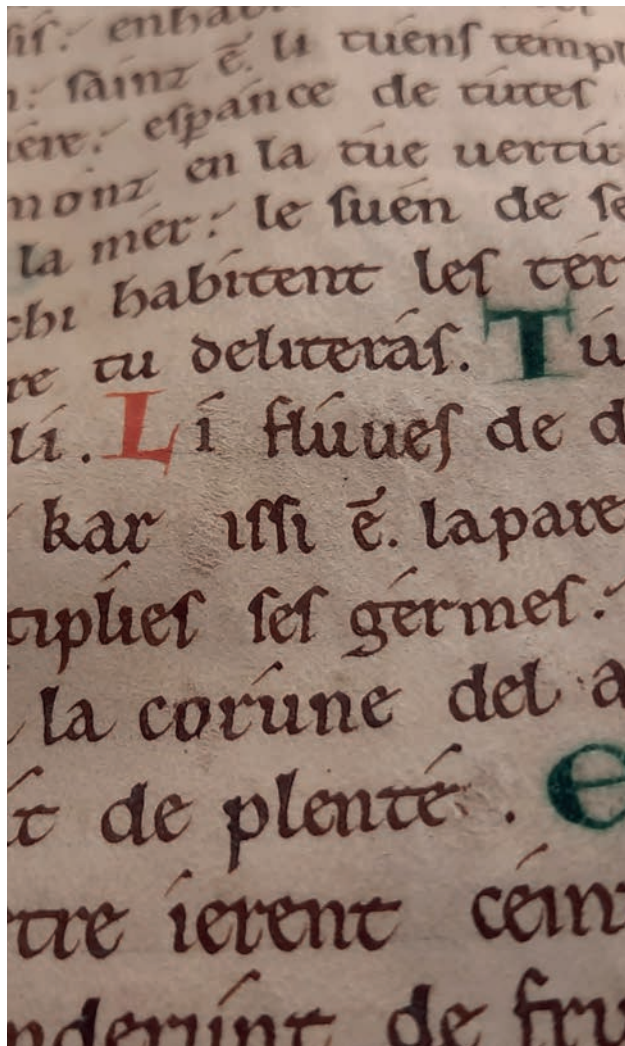 enhab
: sainz ē. li tuens temp
: espance de tutes
monz en la tue uertu
la mér: le suén de se
chi habitent les tér
re tu deliterás. Tú
li. Lí flúues de d
kar issi ē. lapare
tiplies ses gérmes:
la corúne del a
de plenté. e
tre ierent céin
nderúnt de fru